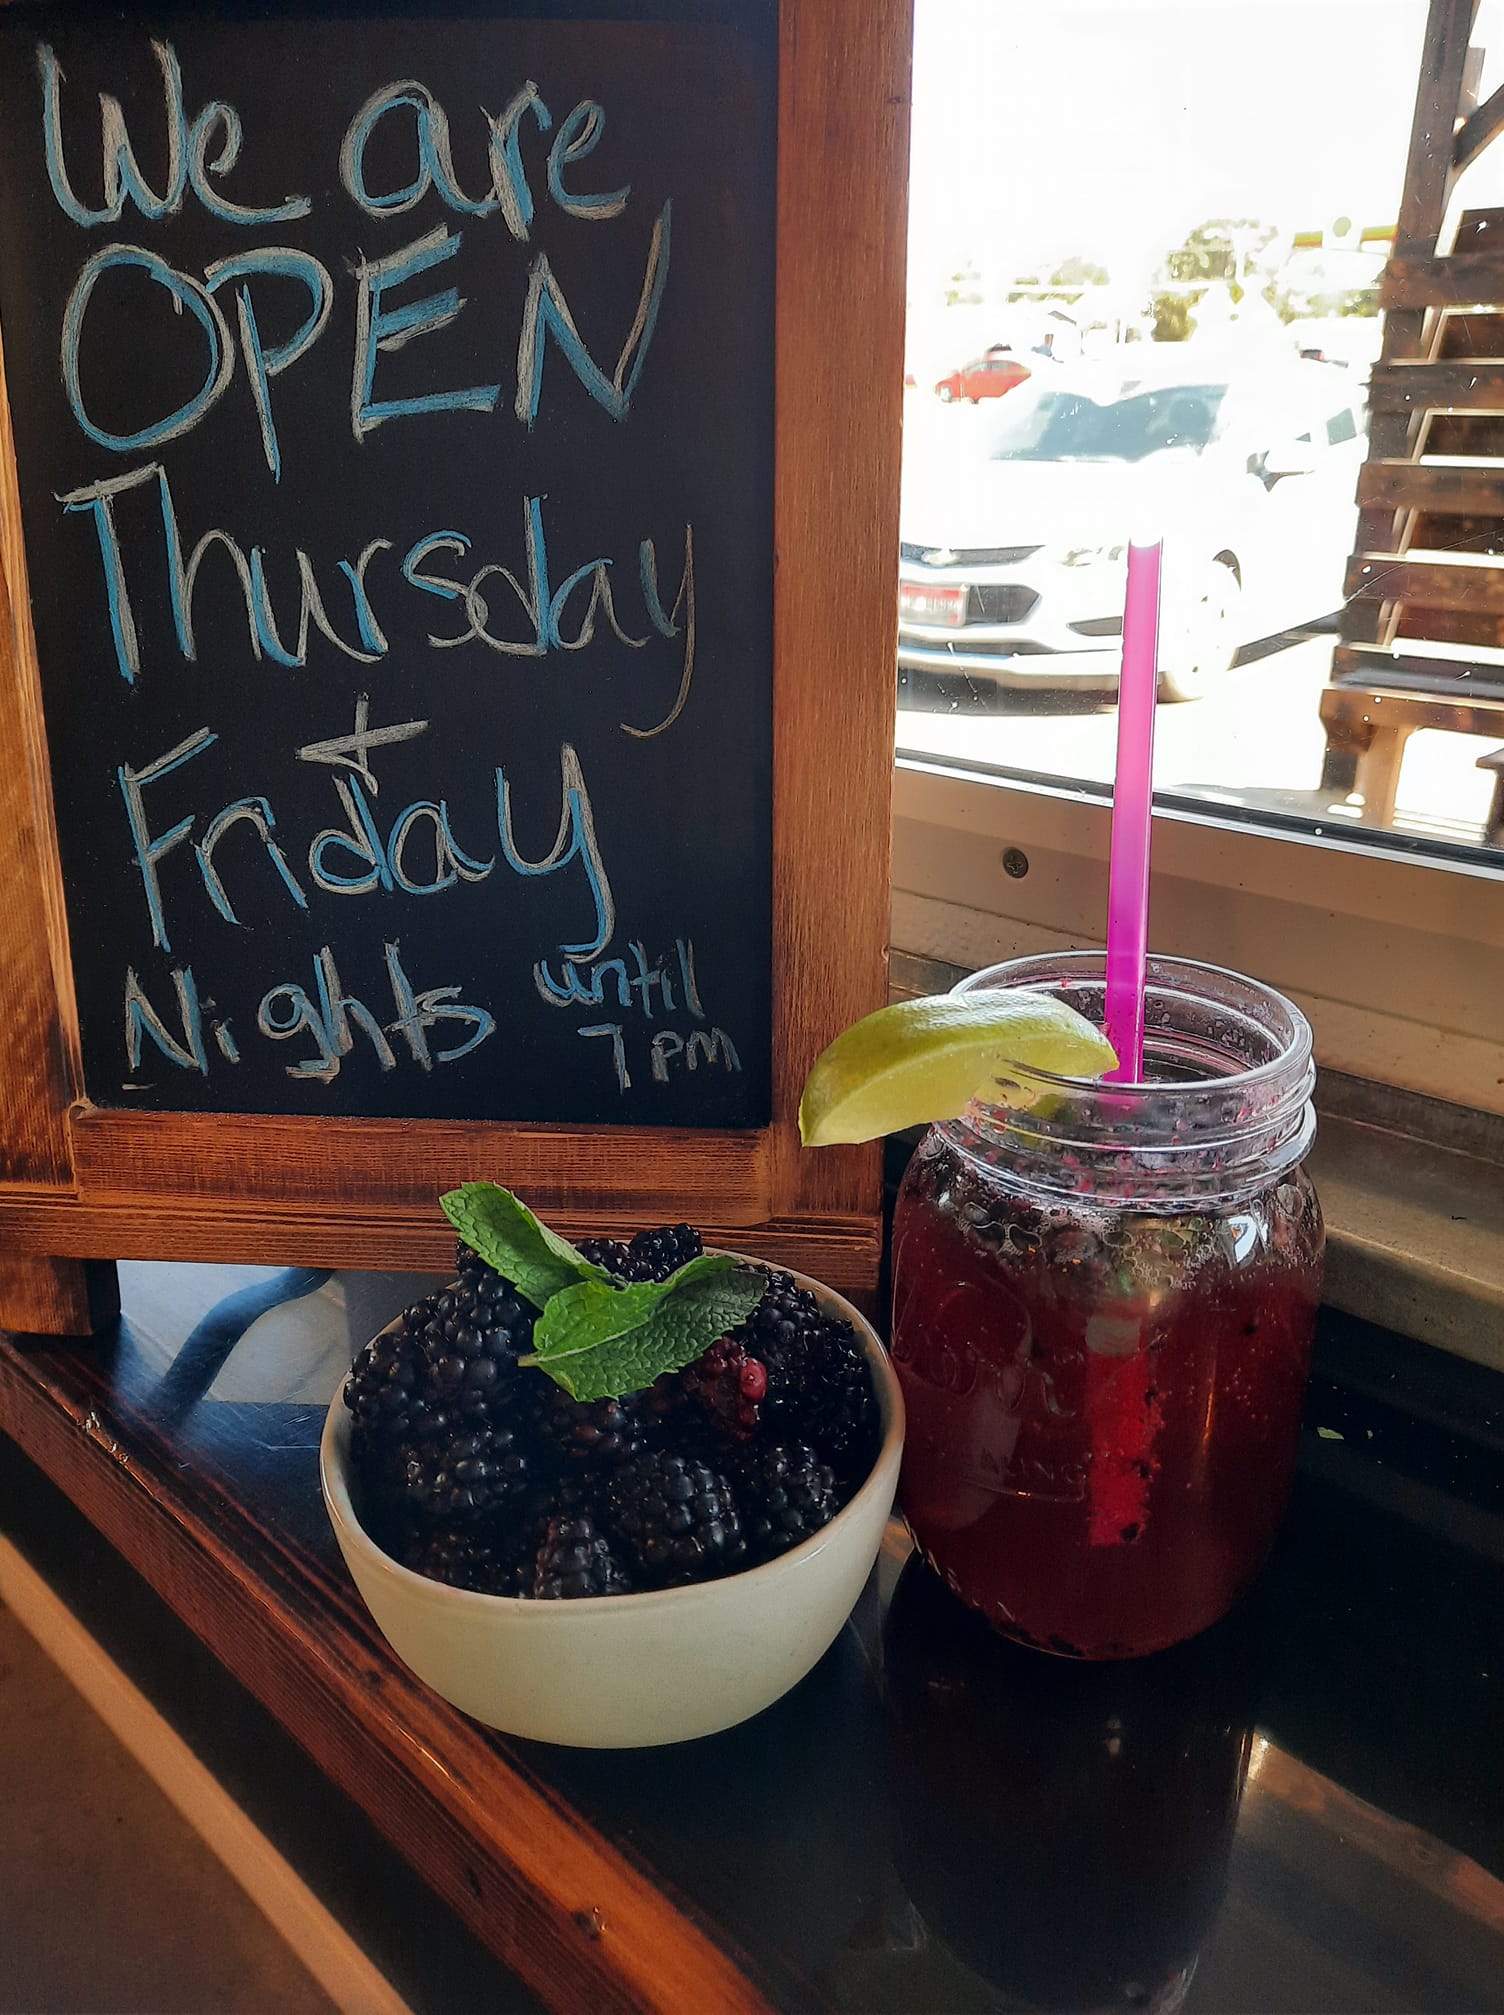 We are
OPEN
Thursday
+
Friday
Nights until
7pm